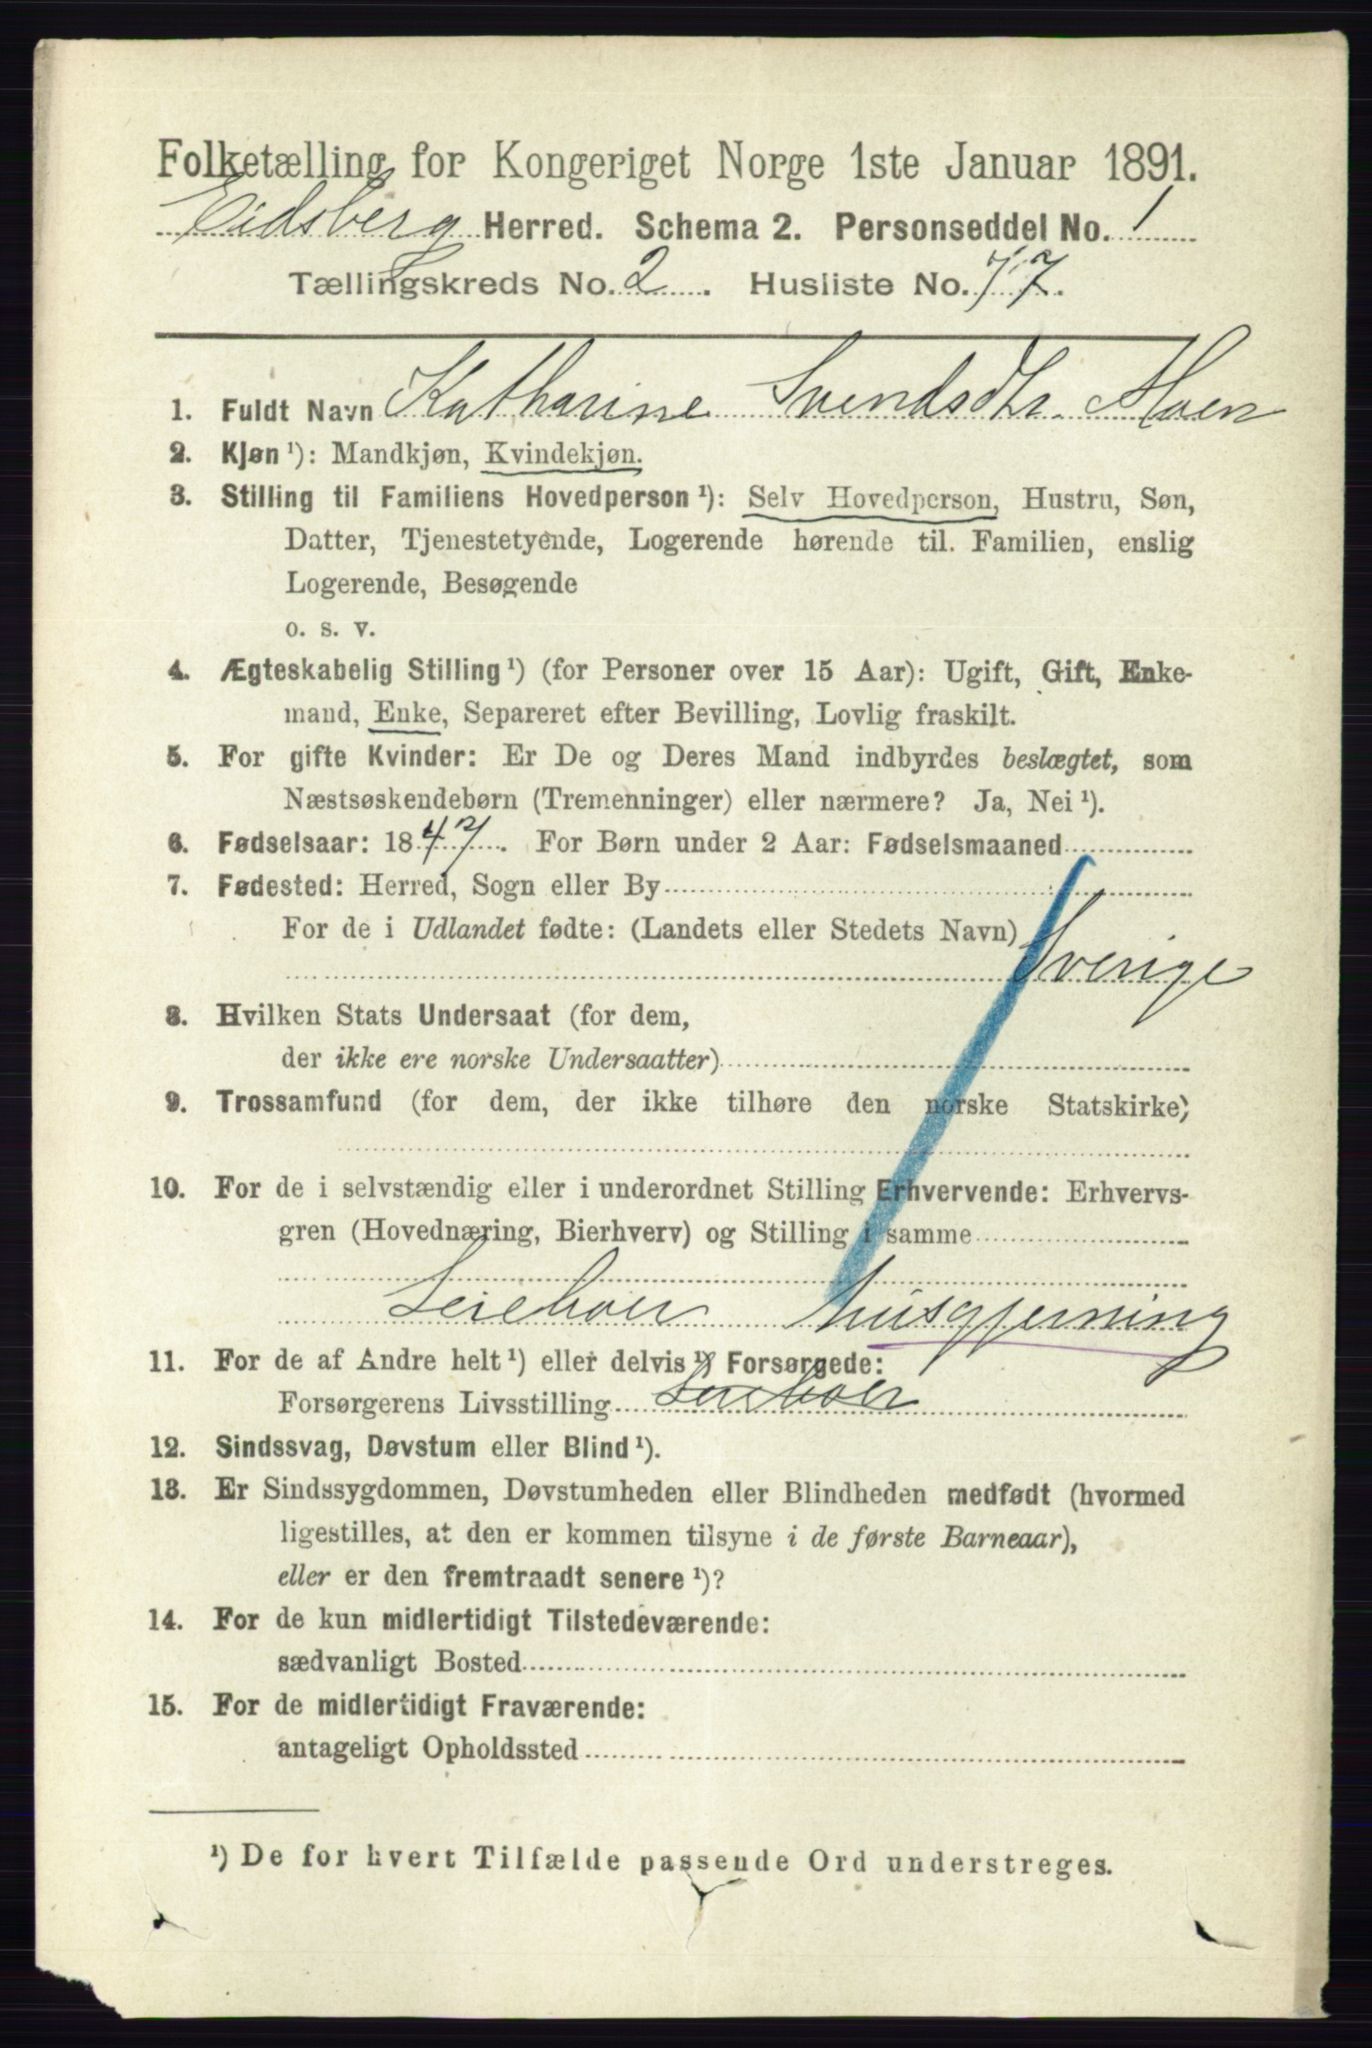 Folketælling for Kongeriget Norge 1ste Januar 1891.
Eidsberg Herred. Schema 2. Personseddel No. 1
Tællingskreds No. 2. Husliste No. 77.
1. Fuldt Navn Katharine Svendsdtr. Moen
2. Kjøn ¹): Mandkjøn, Kvindekjøn.
3. Stilling til Familiens Hovedperson ¹): Selv Hovedperson, Hustru, Søn,
Datter, Tjenestetyende, Logerende hørende til Familien, enslig
Logerende, Besøgende
o. s. v.
4. Ægteskabelig Stilling ¹) (for Personer over 15 Aar): Ugift, Gift, Enke-
mand, Enke, Separeret efter Bevilling, Lovlig fraskilt.
5. For gifte Kvinder: Er De og Deres Mand indbyrdes beslægtet, som
Næstsøskendebørn (Tremenninger) eller nærmere? Ja, Nei ¹).
6. Fødselsaar: 1847. For Børn under 2 Aar: Fødselsmaaned
7. Fødested: Herred, Sogn eller By
For de i Udlandet fødte: (Landets eller Stedets Navn)
Sverige
8. Hvilken Stats Undersaat (for dem,
der ikke ere norske Undersaatter)
9. Trossamfund (for dem, der ikke tilhøre den norske Statskirke)
10. For de i selvstændig eller i underordnet Stilling Erhvervende: Erhvervs-
gren (Hovednæring, Bierhverv) og Stilling i samme
Leieboer husgjerning
11. For de af Andre helt ¹) eller delvis ¹) Forsørgede:
Forsørgerens Livsstilling Leieboer
12. Sindssvag, Døvstum eller Blind ¹).
13. Er Sindssygdommen, Døvstumheden eller Blindheden medfødt (hvormed
ligestilles, at den er kommen tilsyne i de første Barneaar),
eller er den fremtraadt senere ¹)?
14. For de kun midlertidigt Tilstedeværende:
sædvanligt Bosted
15. For de midlertidigt Fraværende:
antageligt Opholdssted
¹) De for hvert Tilfælde passende Ord understreges.